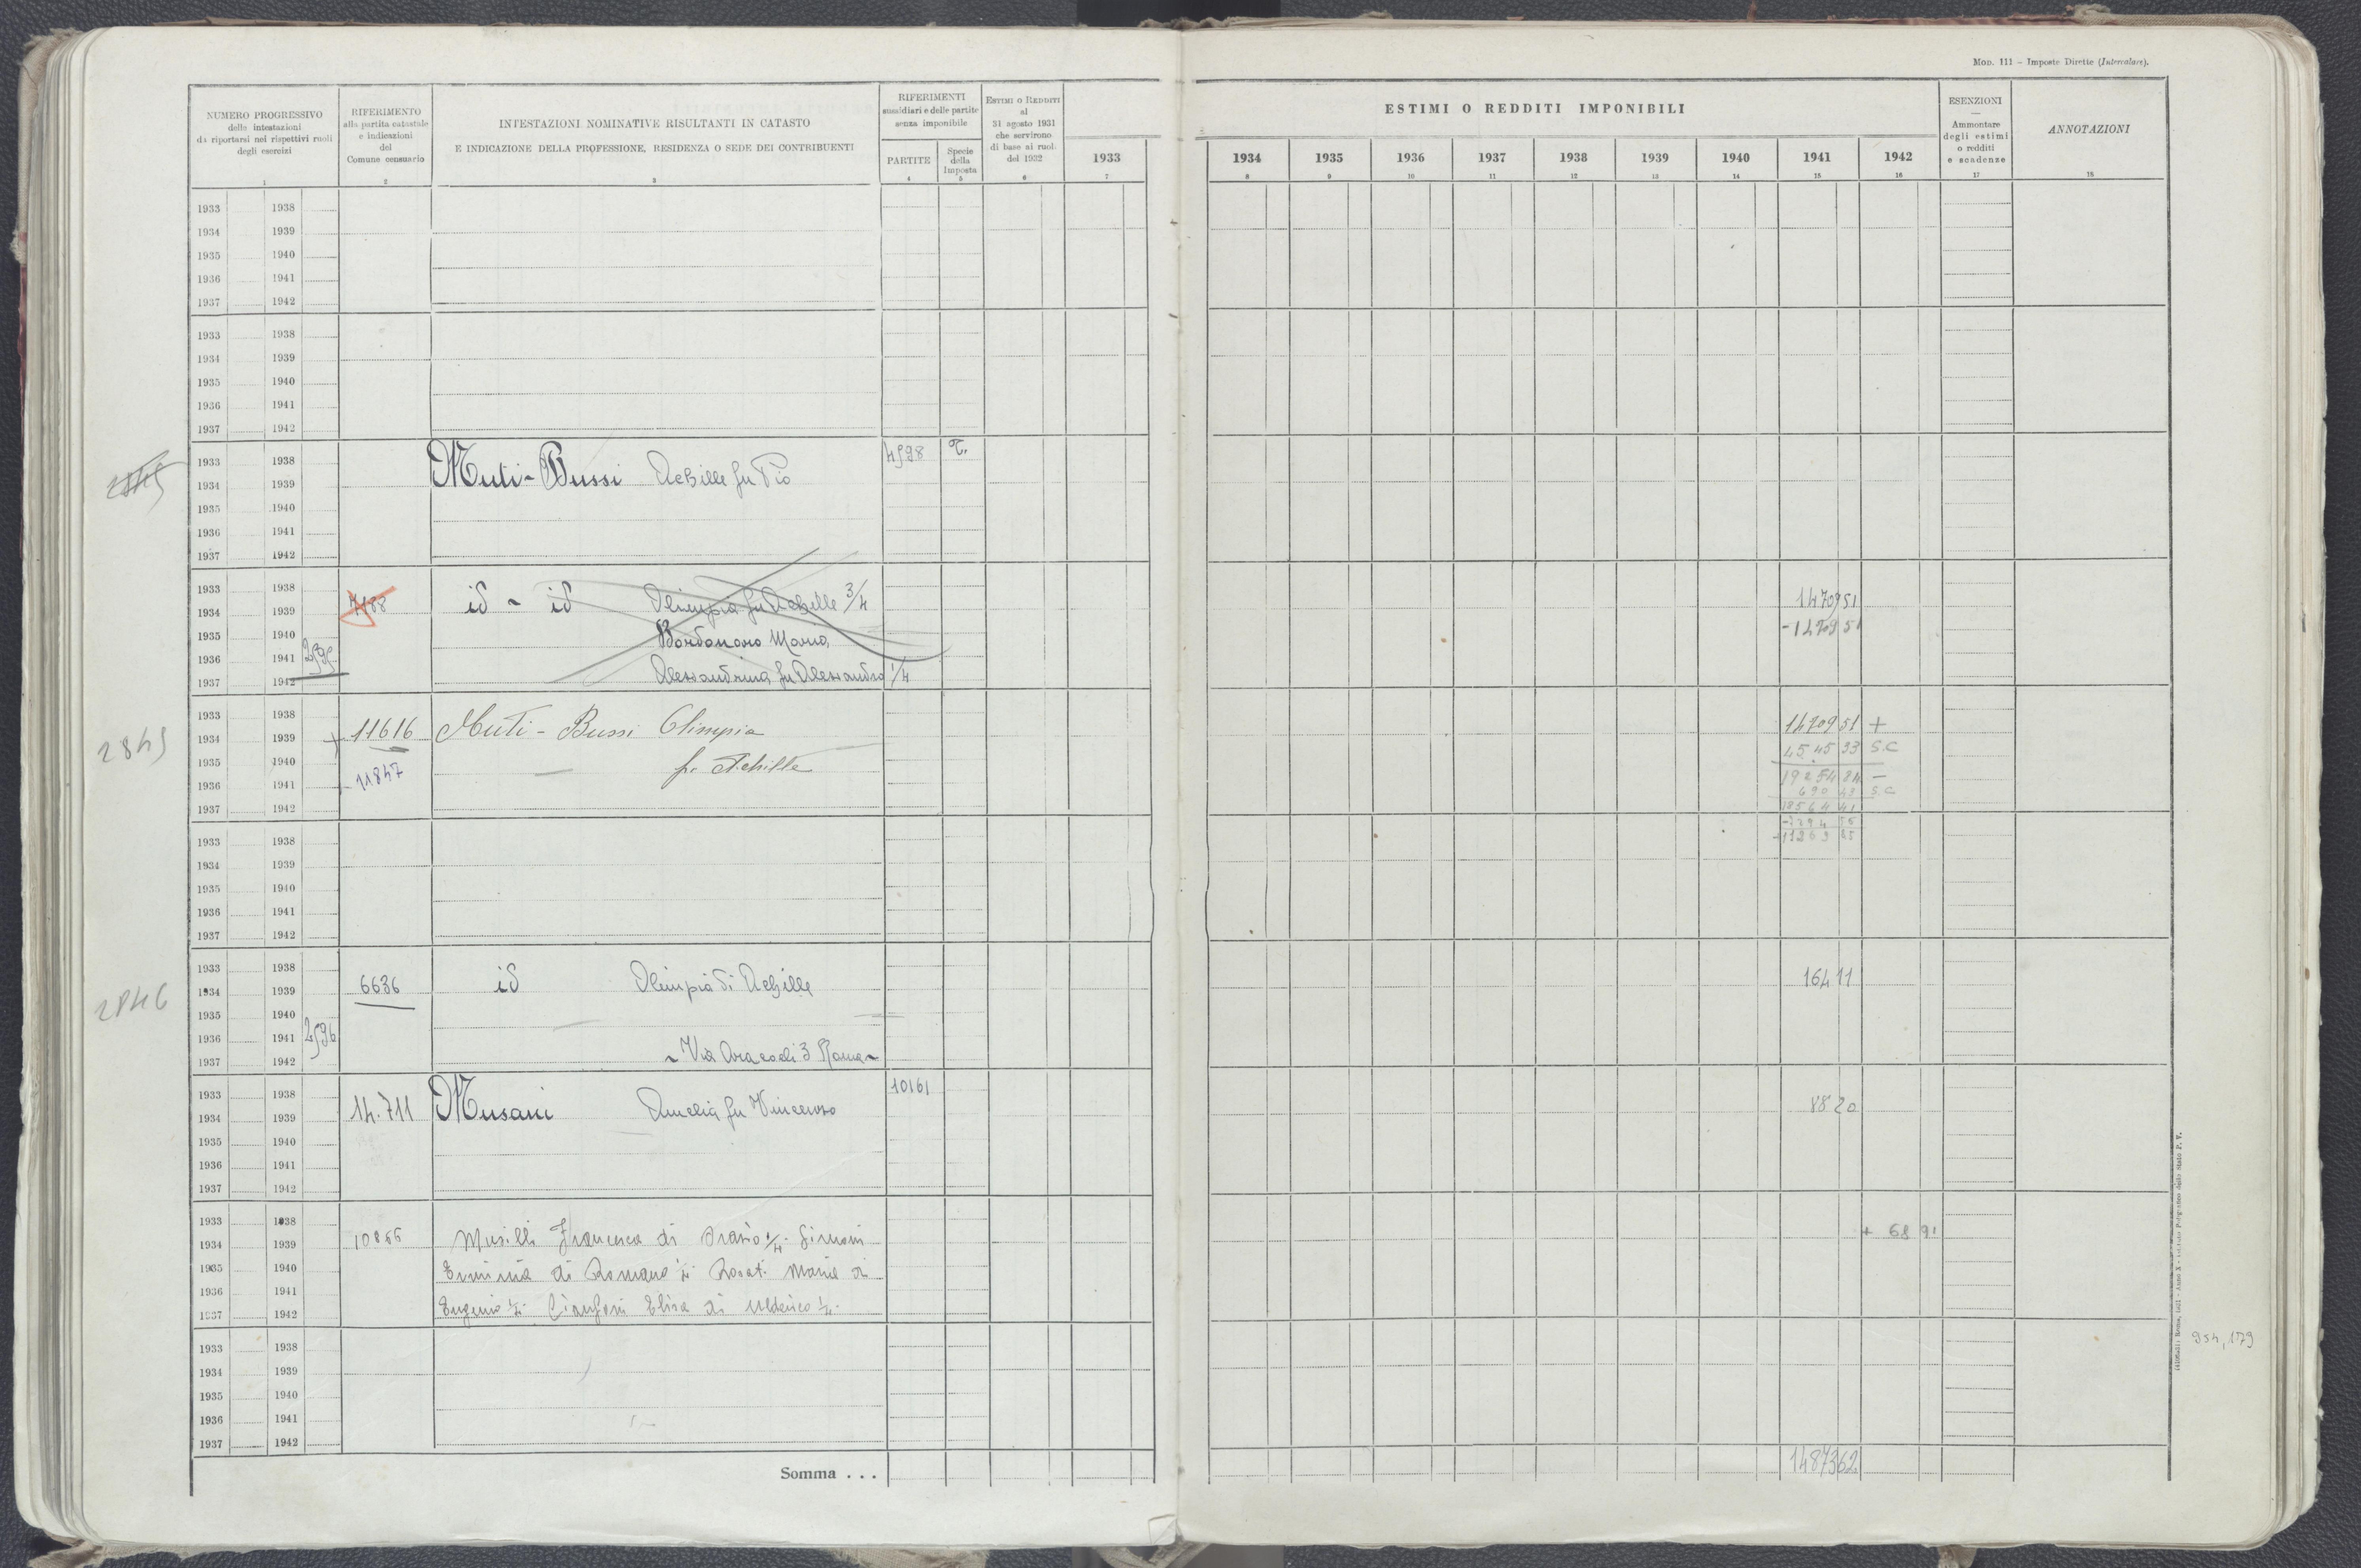 MOD. 111 – Imposte Dirette (Intercalare).
NUMERO PROGRESSIVO
delle intestazioni
da riportarsi nei rispettivi ruoli
degli esercizi
1
RIFERIMENTO
alla partita catastale
e indicazioni
del
Comune censuario
2
INTESTAZIONI NOMINATIVE RISULTANTI IN CATASTO
E INDICAZIONE DELLA PROFESSIONE, RESIDENZA O SEDE DEI CONTRIBUENTI
3
RIFERIMENTI
sussidiari e delle partite
senza imponibile
PARTITE
4
Specie
della
Imposta
5
ESTIMI O REDDITI
al
31 agosto 1931
che servirono
di base ai ruoli
del 1932
6
1933
7
ESTIMI O REDDITI IMPONIBILI
1934 1935 1936 1937 1938 1939 1940 1941 1942
8 9 10 11 12 13 14 15 16
ESENZIONI
—
Ammontare
degli estimi
o redditi
e scadenze
17
ANNOTAZIONI
18
1933 1938
1934 1939
1935 1940
1936 1941
1937 1942
1933 1938
1934 1939
1935 1940
1936 1941
1937 1942
2845
1933 1938 Muti-Bussi Achille fu Pio 4598 T.
1934 1939
1935 1940
1936 1941
1937 1942
1933 1938
1934 1939 7188 id - id Olimpia fu Achille 3/4 1470951
1935 1940 Bordonaro Maria -1470951
1936 1941 2595
1937 1942 Alessandrina fu Alessandro 1/4
1933 1938
2845 1934 1939 11616 Muti - Bussi Olimpia 1470951 +
1935 1940 fu Achille 454533 S.C
1936 1941 11847 1925484 -
69043 S.C
1937 1942 1856441
1933 1938
1934 1939
1935 1940
1936 1941
1937 1942
1933 1938
2846 1934 1939 6636 id Olimpia di Achille 16411
1935 1940
1936 1941 2596
1937 1942 - Via Aracoeli 3 Roma -
1933 1938 10161
1934 1939 14.711 Musani Amelia fu Vincenzo 8820
1935 1940
1936 1941
1937 1942
1933 1938
1934 1939 10866 Musilli Francesca di Orazio 1/4. Simoni + 6891
1935 1940 Erminia di Romano 1/4. Rosati Maria di
1936 1941
1937 1942 Eugenio 1/4. Cianfoni Elisa di Ulderico 1/4.
1933 1938 954,179
1934 1939
1935 1940
1936 1941
1937 1942
Somma . . . 1487362